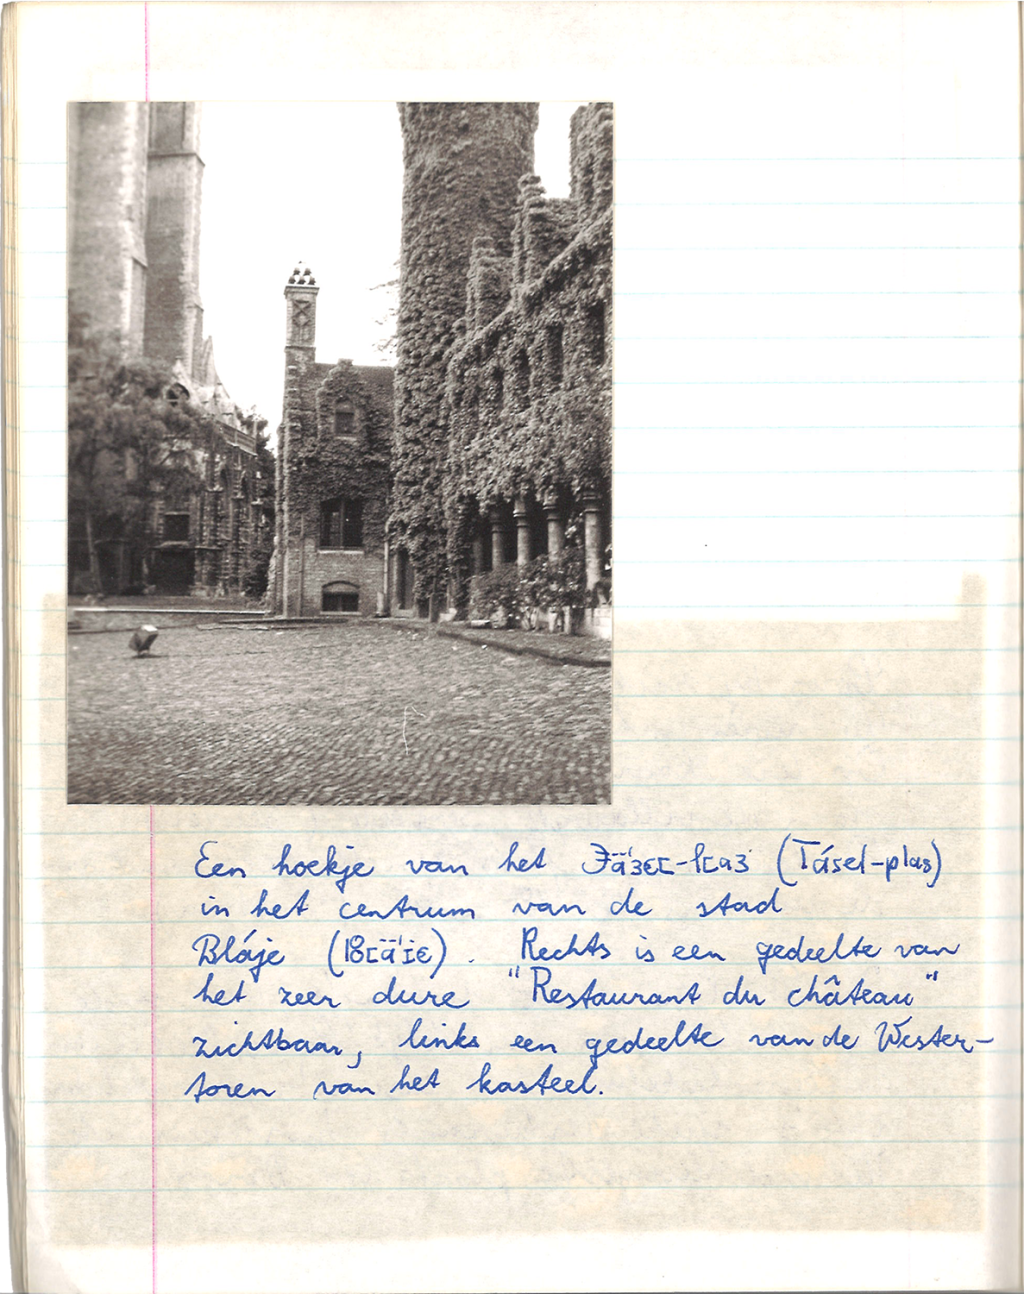 Een hoekje van het (Tásel-plas)
in het centrum van de stad
Bláje . Rechts is een gedeelte van
het zeer dure "Restaurant du château"
zichtbaar, links een gedeelte van de Wester-
toren van het kasteel.